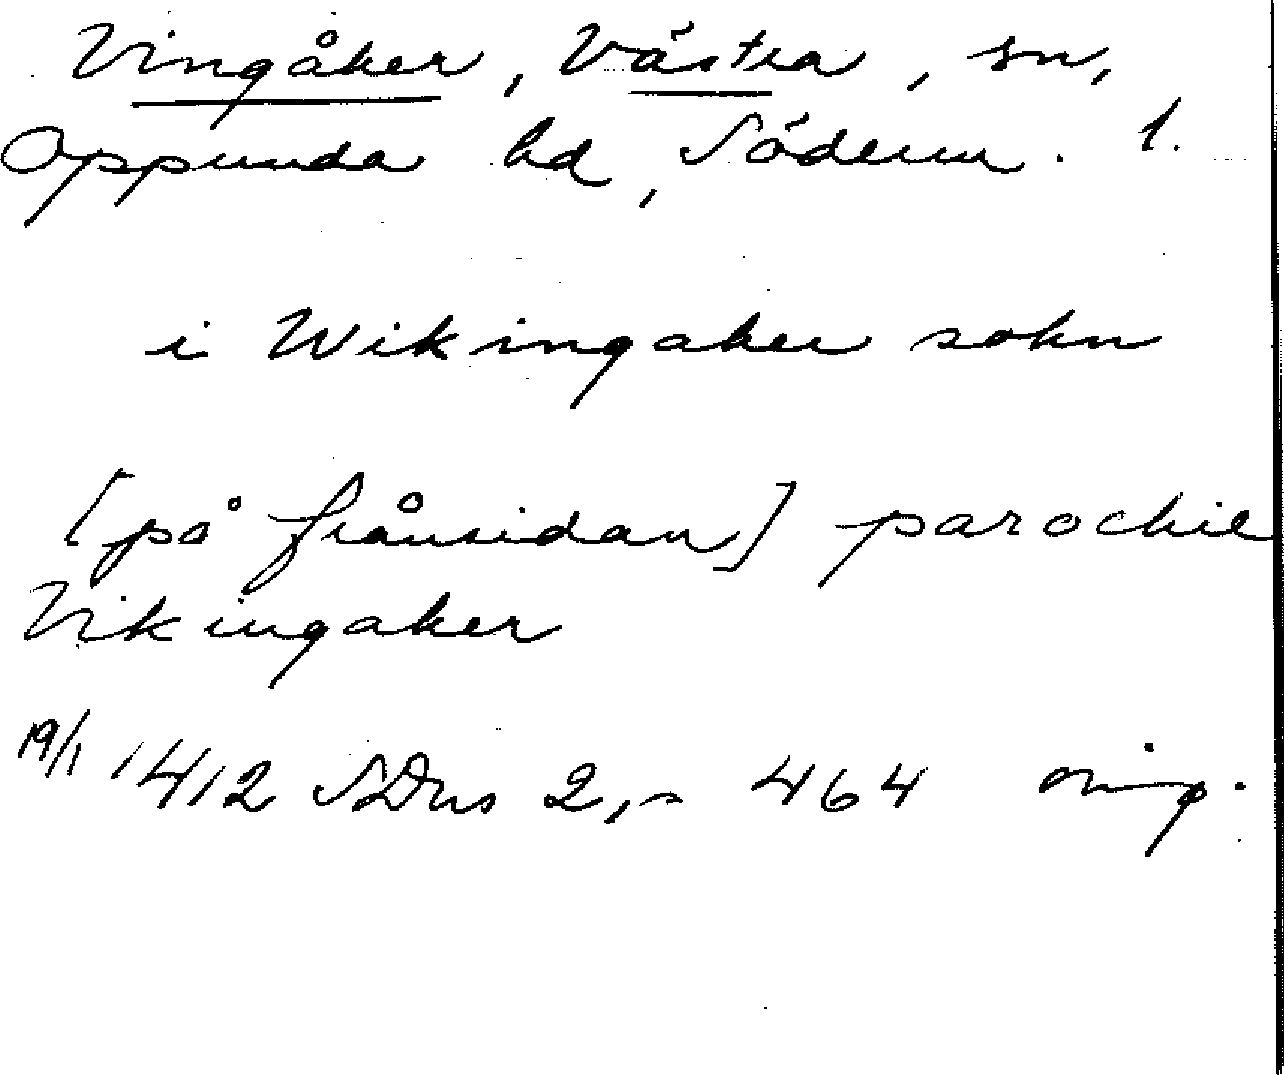 Vingåker, Västra, sn,
Oppunda hd, Söderm. l.
i Wikingaker sokn
[på frånsidan] parochie
Vikingaker
19/1 1412 SDns 2, 464 orig.